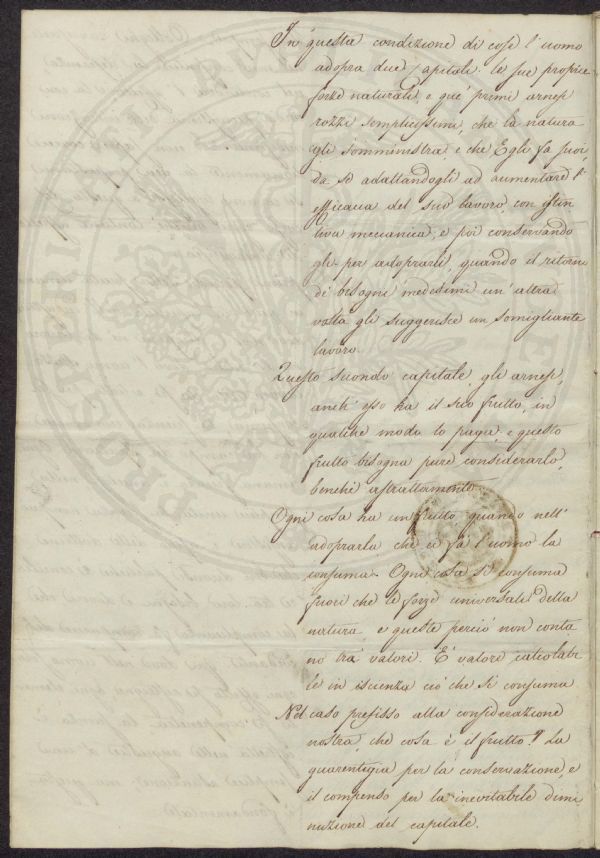 In questa condizione di cose l'uomo
adopra due Capitali. le sue proprie
forze naturali, e que' primi arnesi
rozzi semplicissimi, che la natura
gli somministra, e che Egli fa suoi,
da se adattandogli ad aumentare l'
efficacia del suo lavoro, con istin
tiva meccanica, e poi conservando
gli per adoprarli, quando il ritorno
de' bisogni medesimi un' altra
volta gli suggerisce un somigliante
lavoro.
Questo secondo capitale, gli arnesi,
anch' esso ha il suo frutto, in
qualche modo lo paga, e questo
frutto bisogna pure considerarlo,
benchè astrattamente.
Ogni cosa ha un frutto quando nell'
adoprarla che ei fà l'uomo la
consuma. Ogni cosa si consuma
fuori che le forze universali della
natura, e queste perciò non conta
no trà valori. È valore calcolabi
le in iscienza ciò che si consuma
Nel caso prefisso alla considerazione
nostra, che cosa è il frutto? La
guarentigia per la conservazione, e
il compenso per la inevitabile dimi
nuzione del capitale.